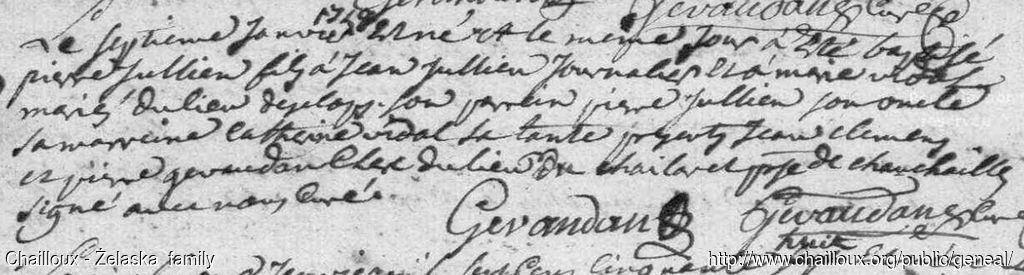 Gevaudan Curé
1758
Le septieme janvier est né et le meme jour à eté baptisé
pierre jullien fils à jean jullien journalier et à marie vidal
mariés du lieu de son parrein pierre jullien son oncle
sa marreine catherine vidal sa tante presents jean clemens
et pierre gevaudan clerc du lieu du chailaret psse de chanchailles
signé avec nous curé
Gevaudan Gevaudan Curé
huit
Chailloux - Żelaska family
http://www.chailloux.org/public/geneal/